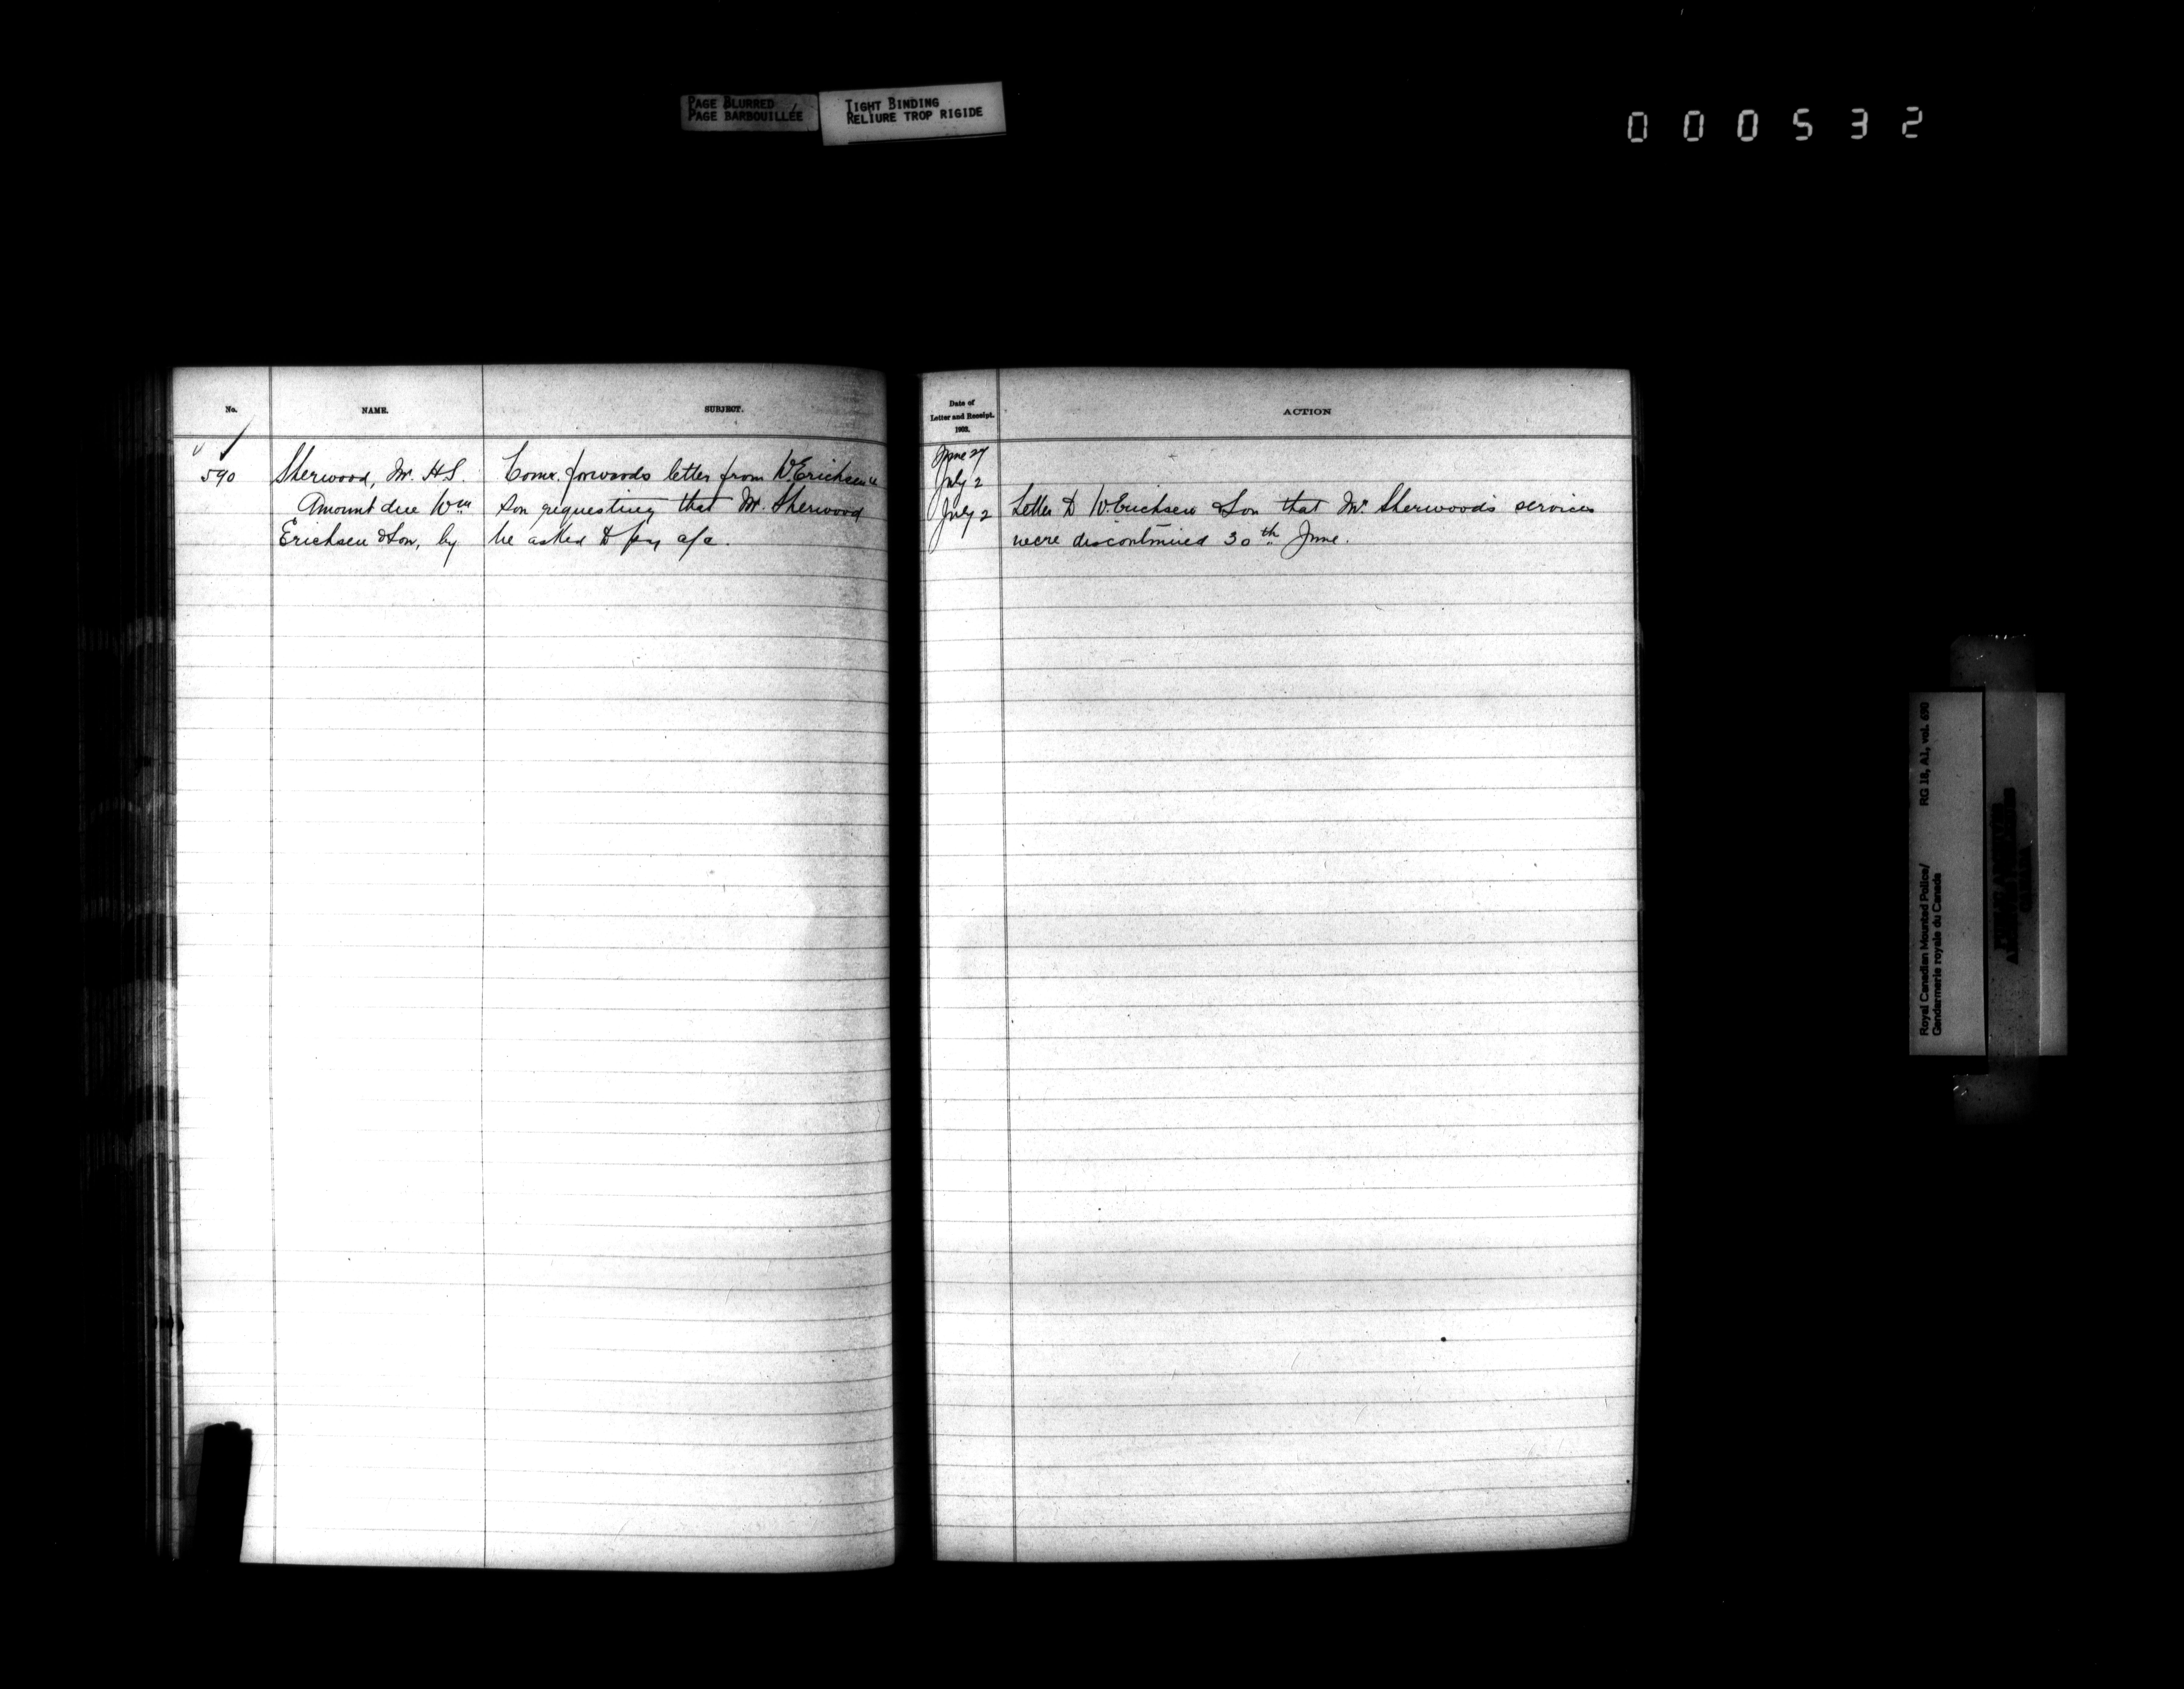 PAGE BLURRED
PAGE BARBOUILLÉE
TIGHT BINDING
RELIURE TROP RIGIDE
000532
No.
NAME.
SUBJECT.
590
Sherwood, Mr. H.S.
Amount due Wm
Erichsen & Son, by
Comr. forwards letter from W. Erichsen &
Son requesting that Mr. Sherwood
be asked to pay a/c.
Date of
Letter and Receipt.
1903.
ACTION
June 27
July 2
July 2
Letter to W. Erichsen & Son that Mr. Sherwood's services
were discontinued 30th June.
Royal Canadian Mounted Police/
Gendarmerie royale du Canada
RG 18, A1, vol. 690